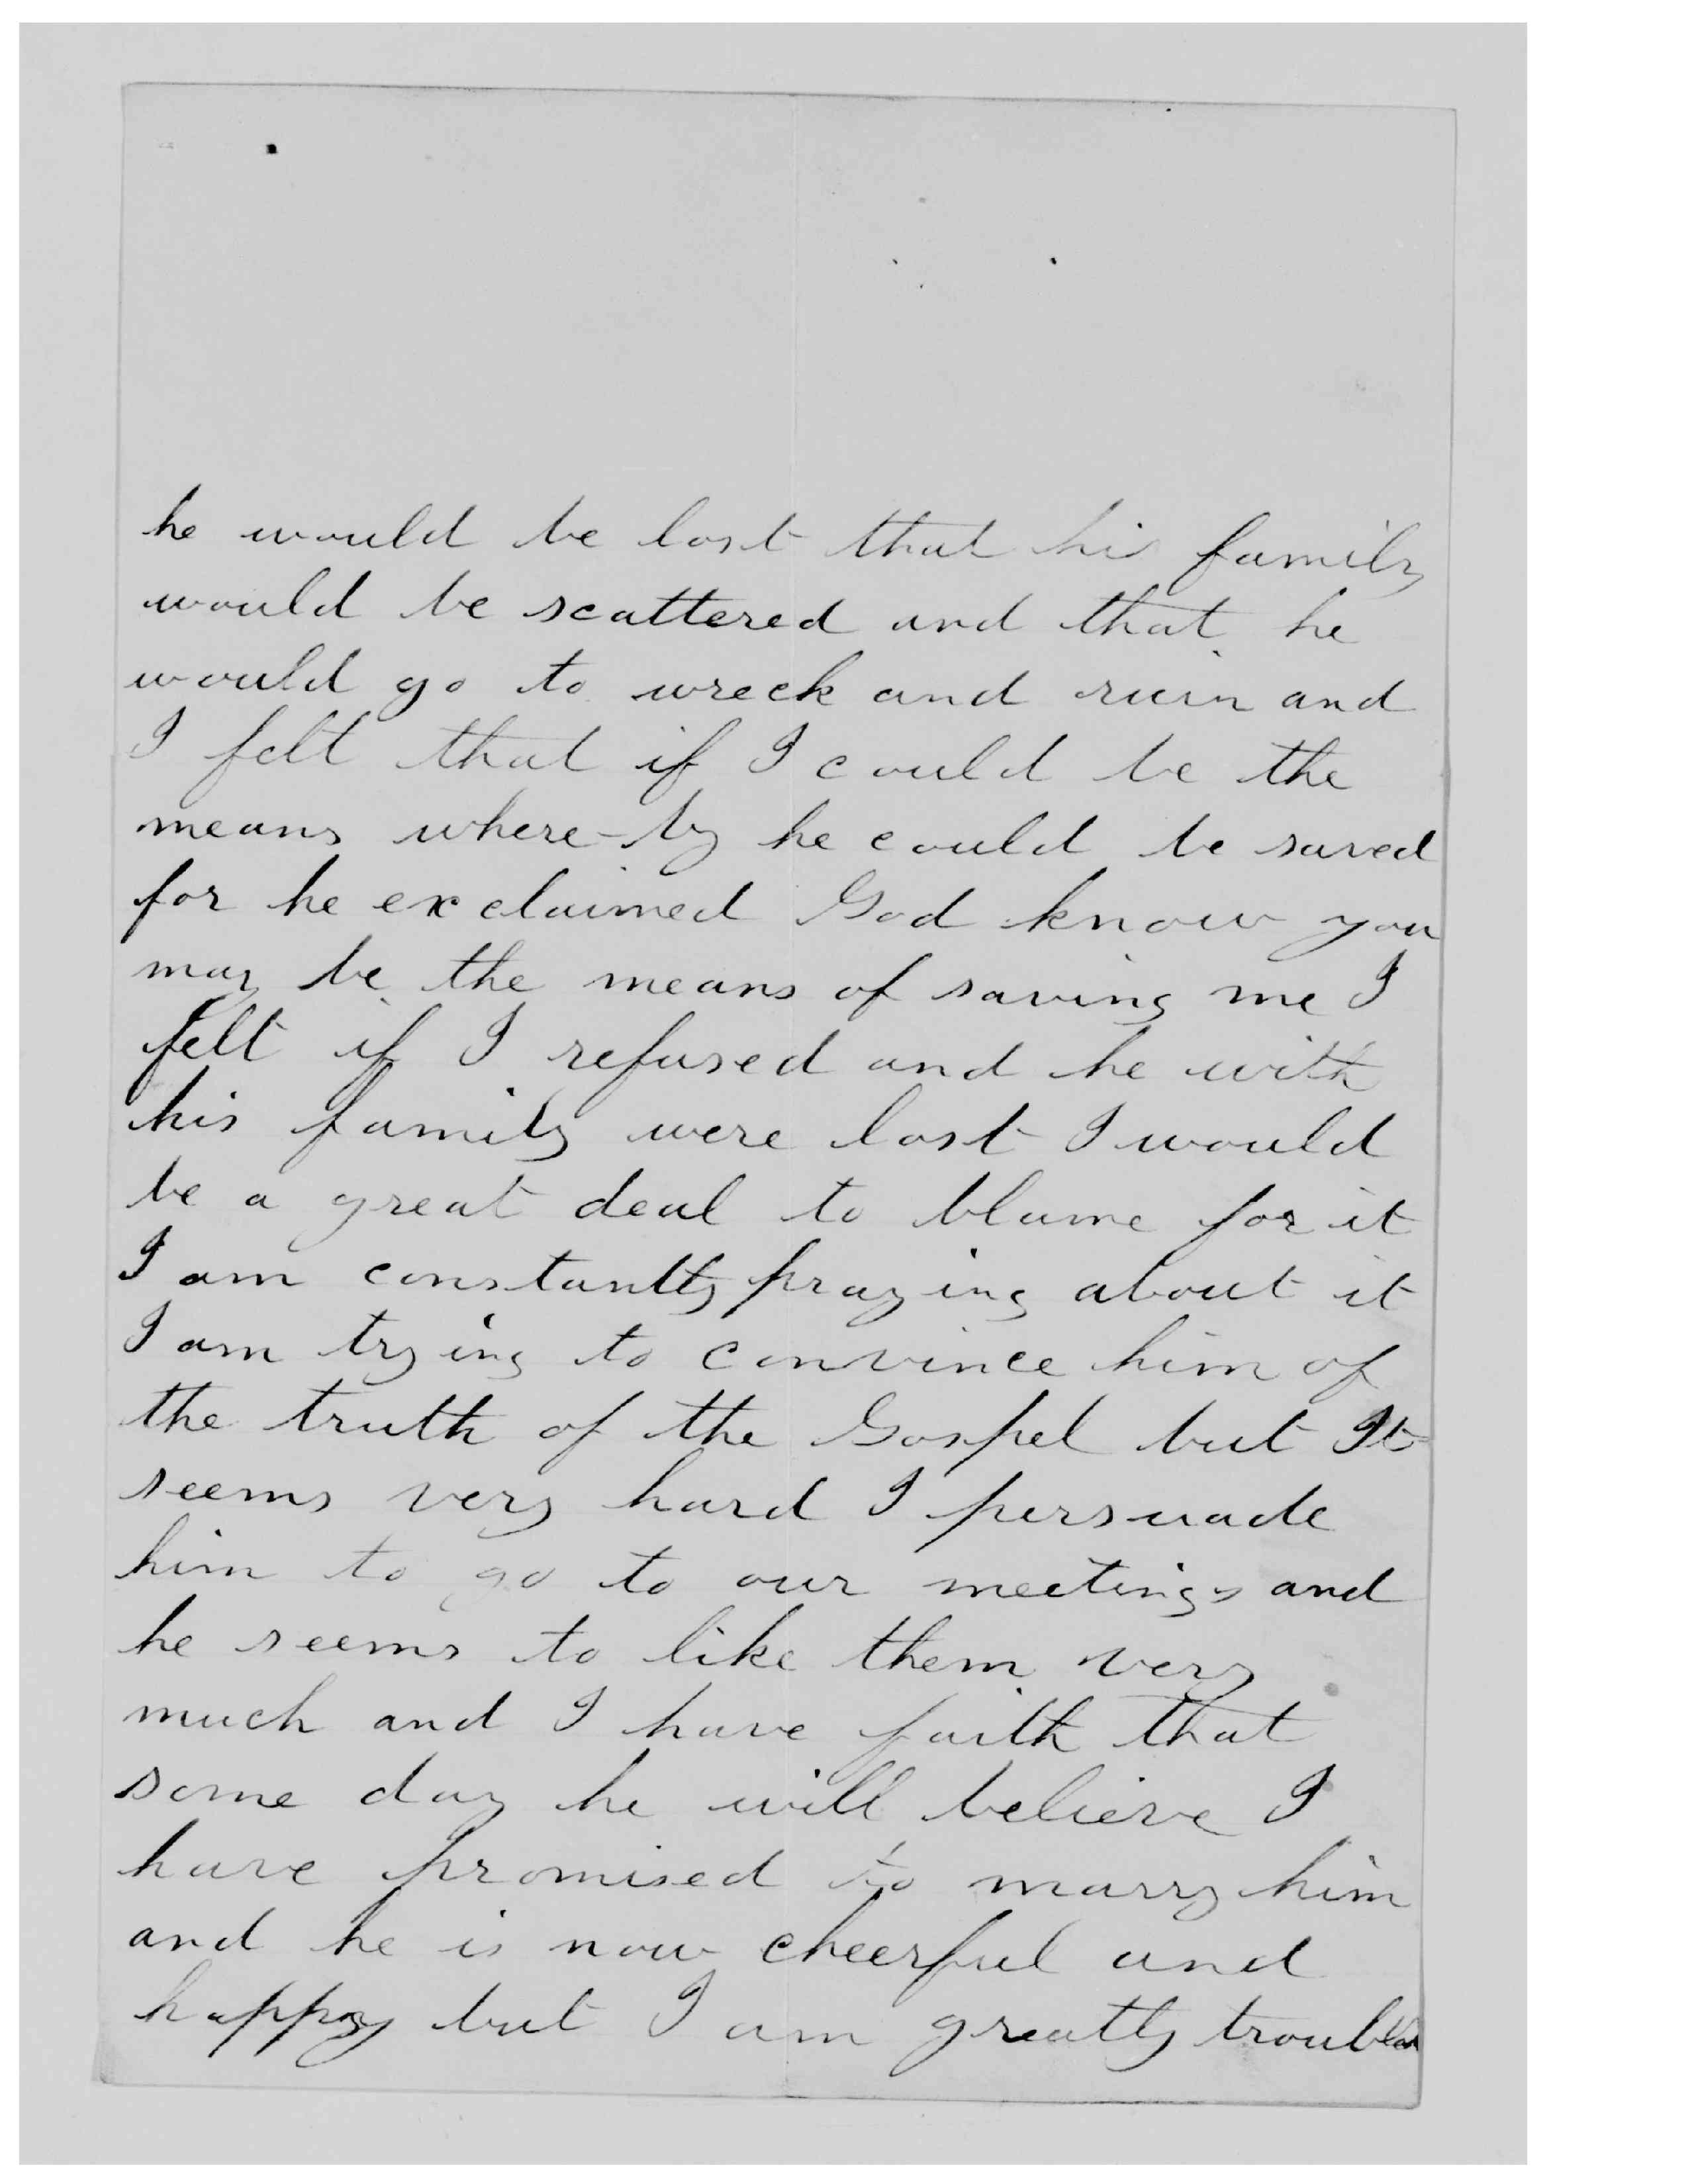 he would be lost that his family
would be scattered and that he
would go to wreck and ruin and
I felt that if I could be the
means where-by he could be saved
for he exclaimed God know you
may be the means of saving me I
felt if I refused and he with
his family were lost I would
be a great deal to blame for it
I am constantly praying about it
I am trying to convince him of
the truth of the Gospel but It
seems very hard I persuade
him to go to our meetings and
he seems to like them very
much and I have faith that
some day he will believe I
have promised to marry him
and he is now cheerful and
happy but I am greatly troubled